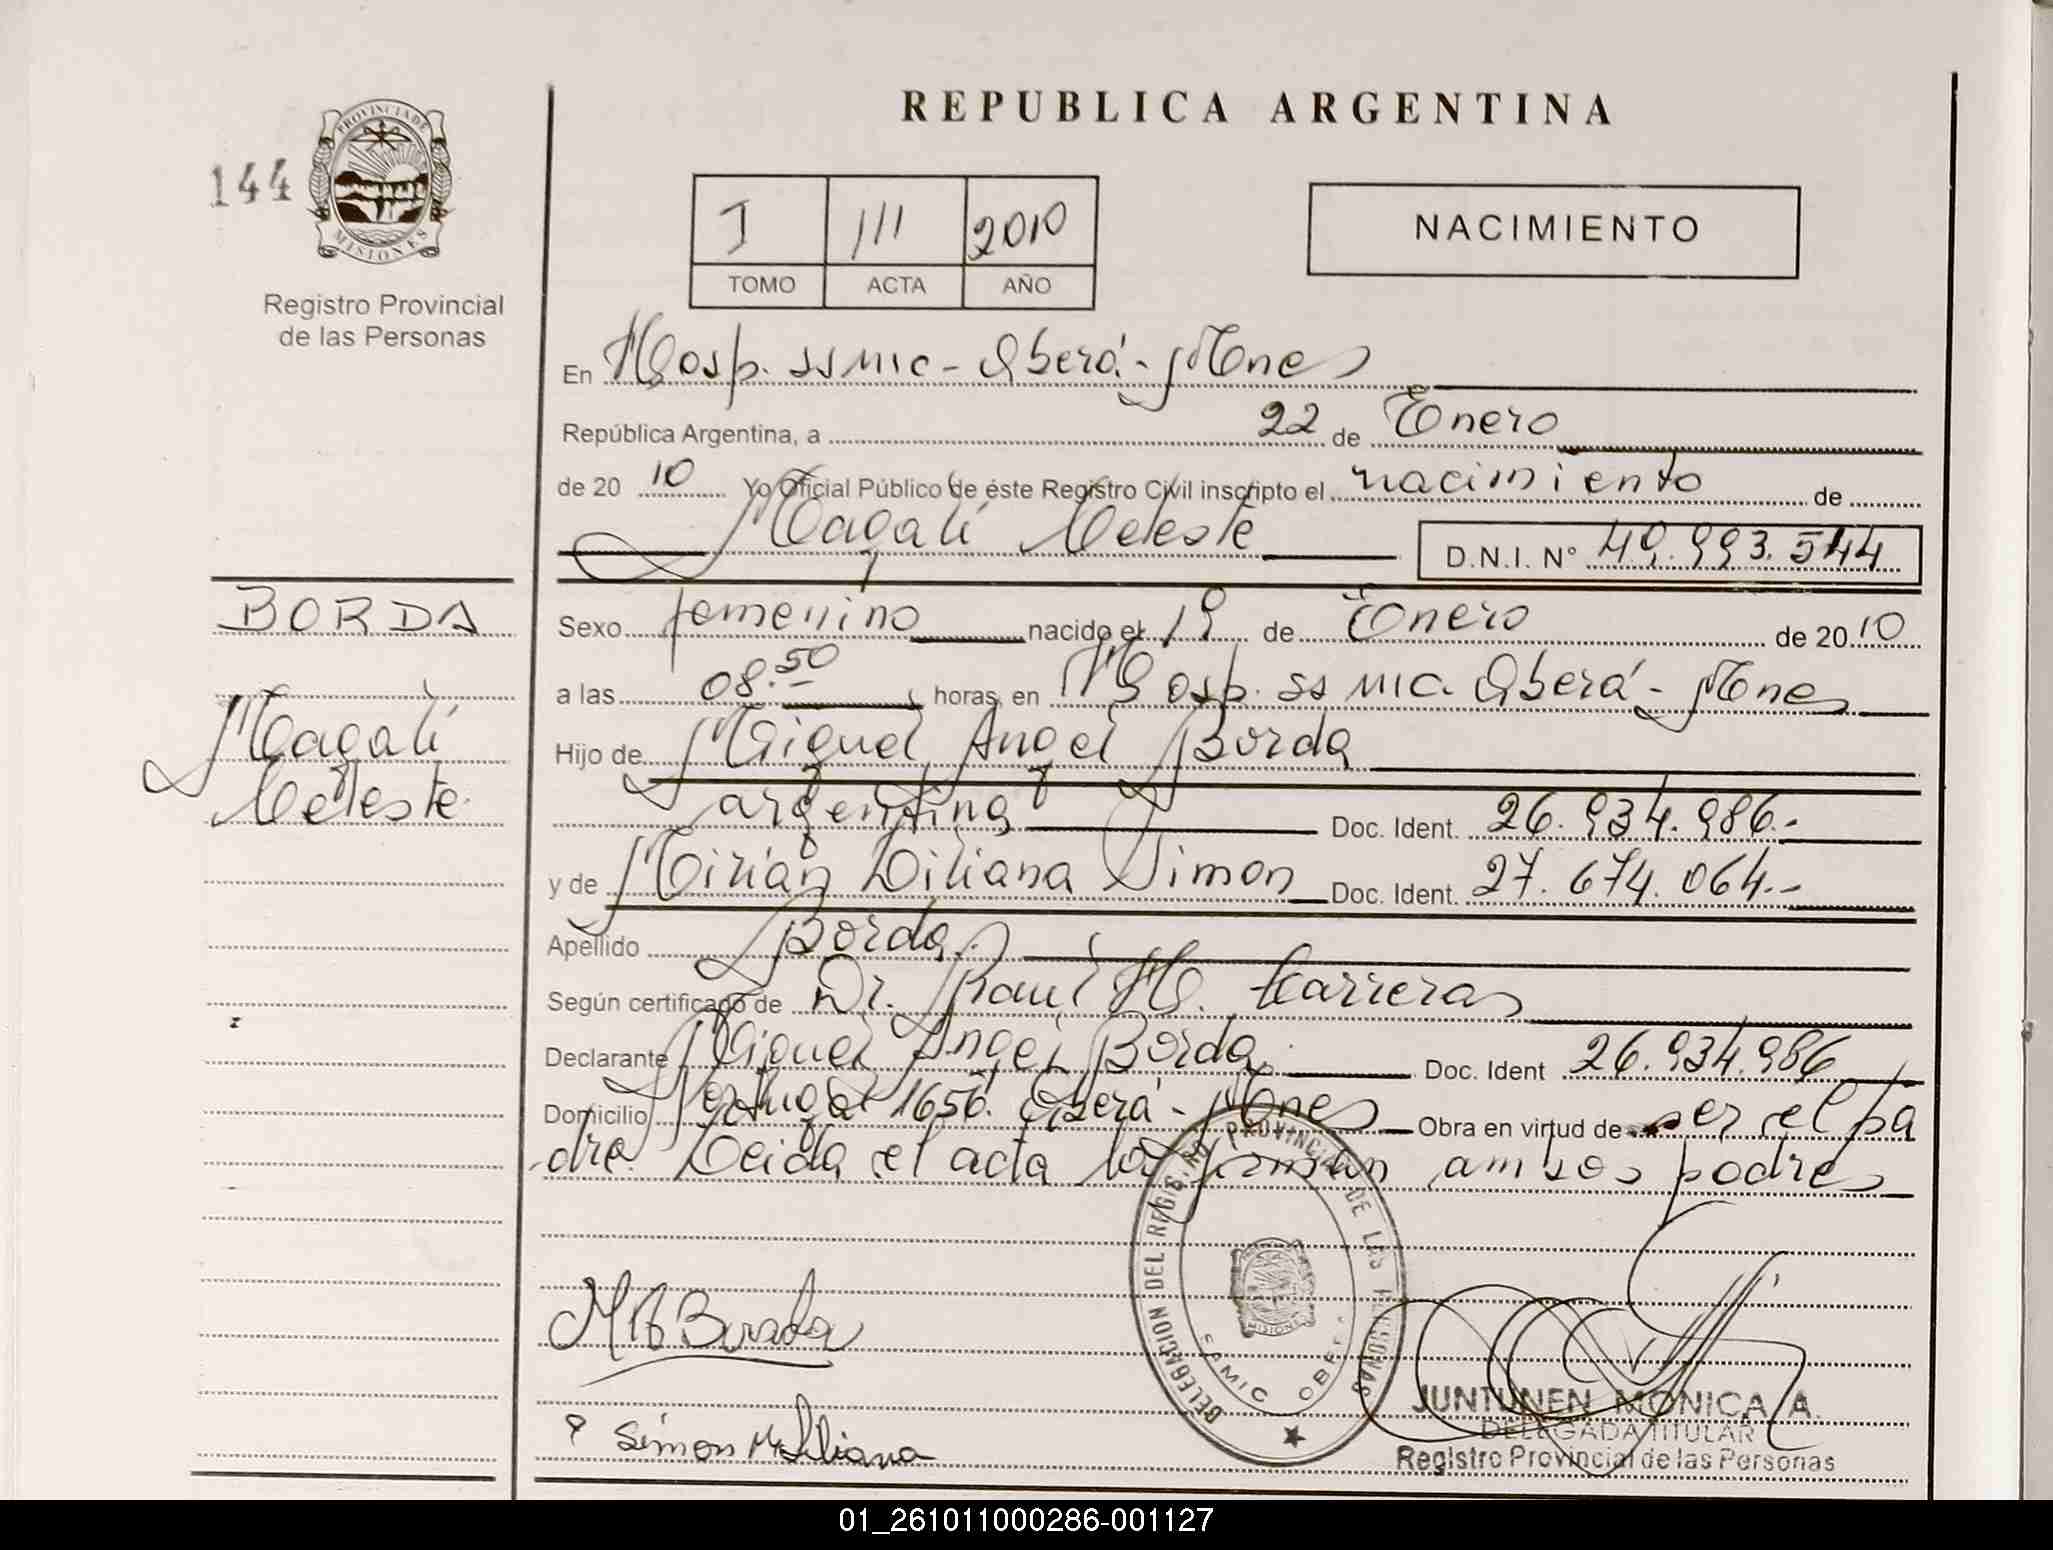 REPUBLICA ARGENTINA
144
PROVINCIA DE
MISIONES
Registro Provincial
de las Personas
I 111 2010
TOMO ACTA AÑO
NACIMIENTO
En Hosp. SSMIC - Oberá - Mnes
República Argentina, a 22 de Enero
de 20 10 Yo Oficial Público de éste Registro Civil inscripto el nacimiento de
Magalí Celeste D.N.I. Nº 49.993.544
BORDA
Magalí
Celeste
Sexo femenino nacido el 19 de Enero de 20 10
a las 08.50 horas, en Hosp. SSMIC. Oberá - Mnes
Hijo de Miguel Angel Borda
argentina Doc. Ident. 26.934.986.-
y de Mirian Liliana Simon Doc. Ident. 27.674.064.-
Apellido Borda.
Según certificado de Dr. Raul H. Carreras
Declarante Miguel Angel Borda. Doc. Ident 26.934.986
Domicilio Portugal 1656. Oberá - Mnes Obra en virtud de ser el pa
dre. Leida el acta la firman ambos padres
DELEGACION DEL REGISTRO PROVINCIAL DE LAS PERSONAS
SAMIC OBERA
MISIONES
MABorda
Simon M Liliana
JUNTUNEN MONICA A.
DELEGADA TITULAR
Registro Provincial de las Personas
01_261011000286-001127